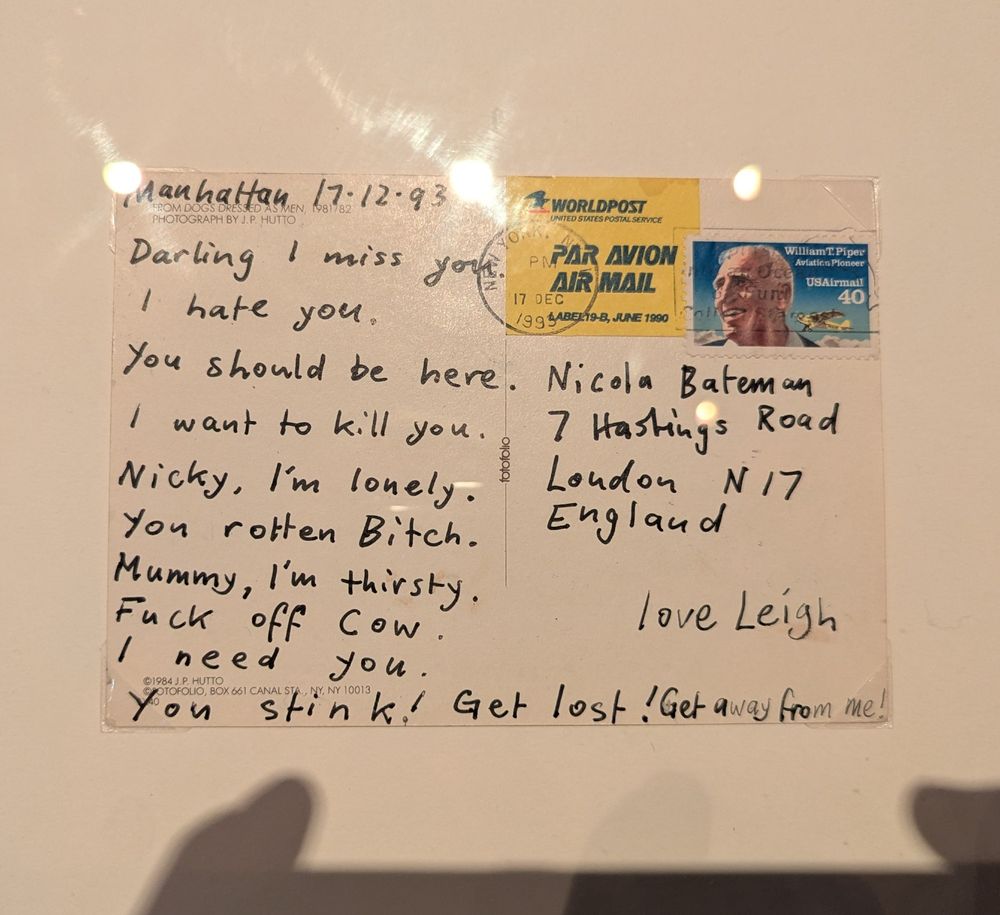 Manhattan 17.12.93
FROM DOGS DRESSED AS MEN, 1981/82
PHOTOGRAPH BY J.P. HUTTO
Darling I miss you.
I hate you.
You should be here.
I want to kill you.
Nicky, I'm lonely.
You rotten Bitch.
Mummy, I'm thirsty.
Fuck off Cow.
I need you.
©1984 J.P. HUTTO
©FOTOFOLIO, BOX 661 CANAL STA., NY, NY 10013
You stink! Get lost! Get away from me!
fotofolio
WORLDPOST
UNITED STATES POSTAL SERVICE
PAR AVION
AIR MAIL
LABEL 19-B, JUNE 1990
NEW YORK, N
PM
17 DEC
1993
William T. Piper
Aviation Pioneer
USAirmail
40
Nicola Bateman
7 Hastings Road
London N17
England
love Leigh